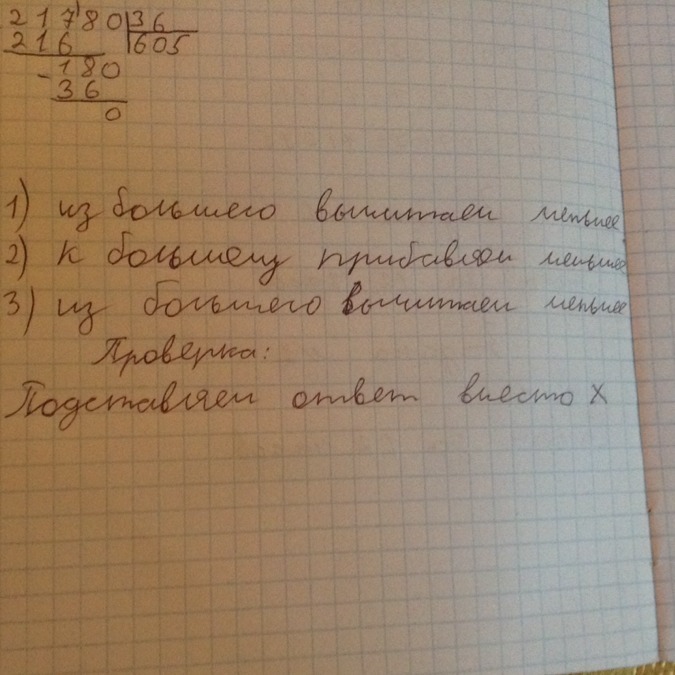 21780 36
216 605
-180
36
0
1) из большего вычитаем меньшее
2) к большему прибавляем меньшее
3) из большего вычитаем меньшее
Проверка:
Подставляем ответ вместо x